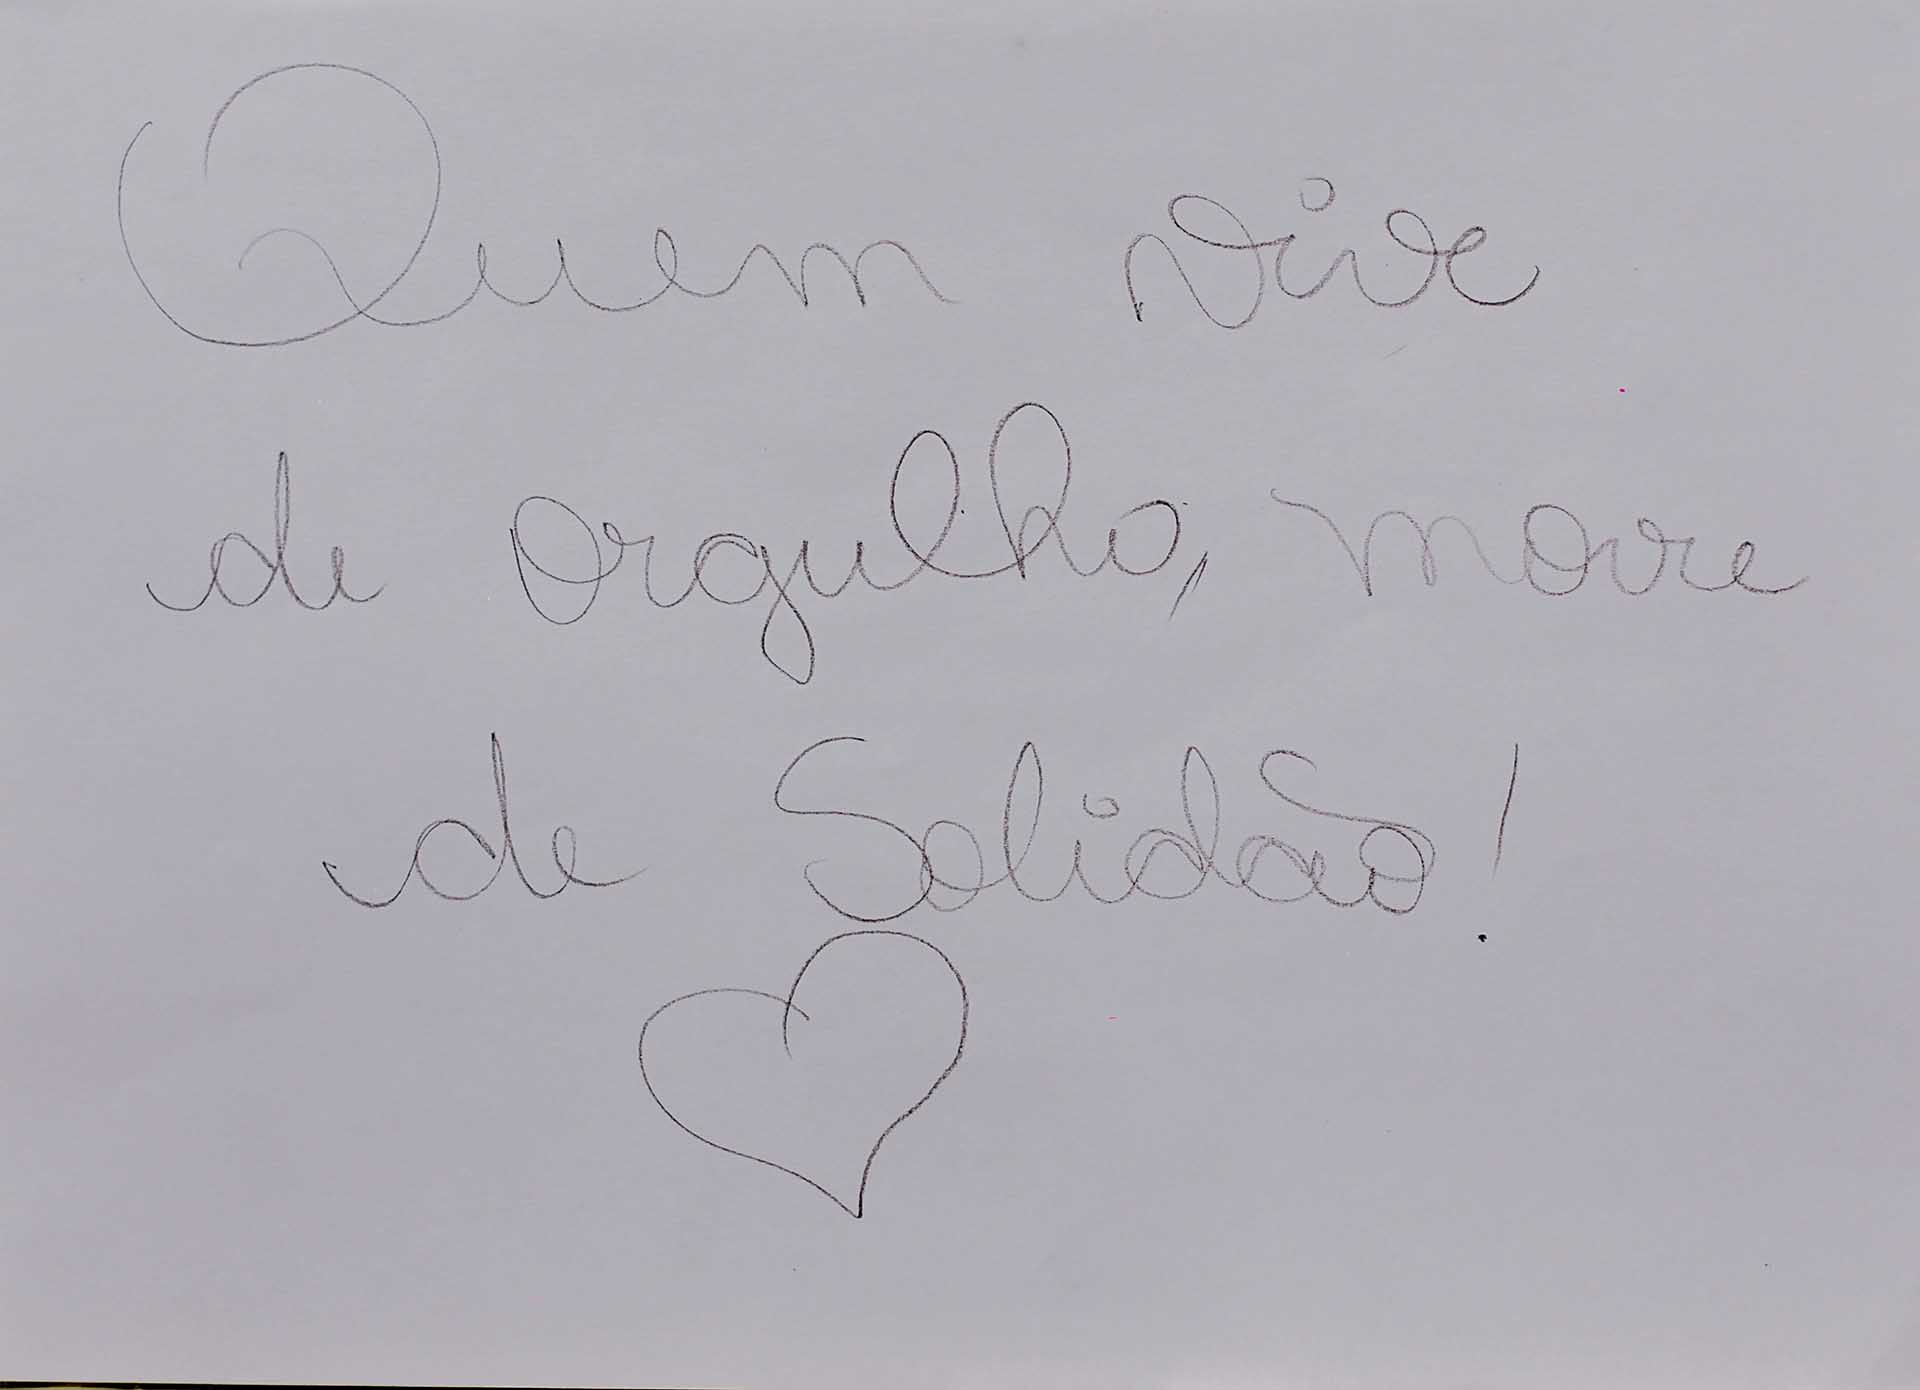 Quem vive
de orgulho, morre
de Solidão!